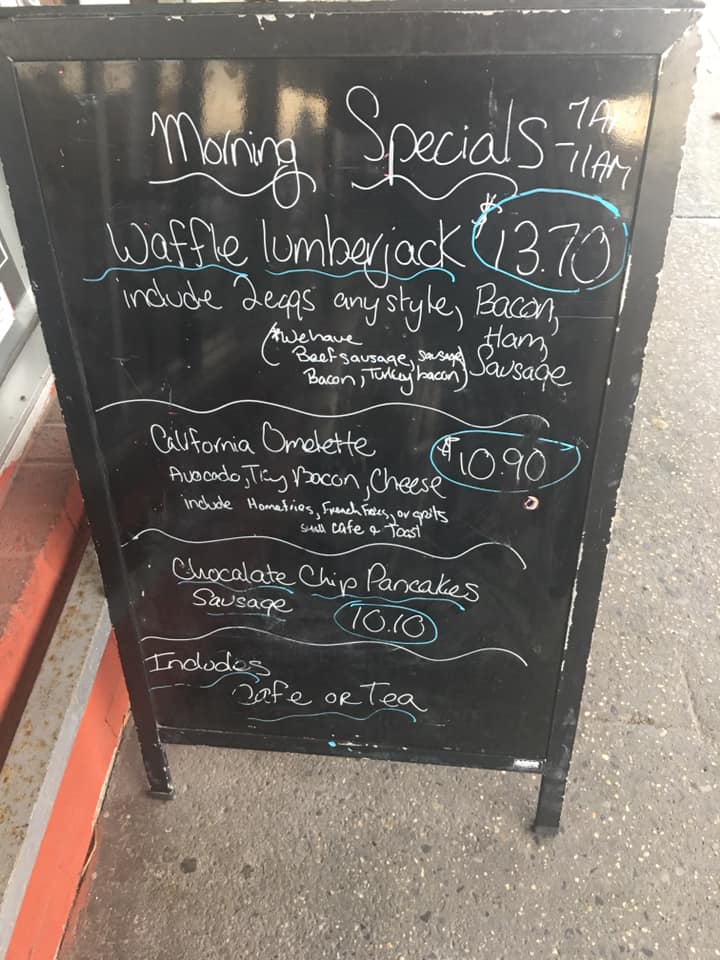 Morning Specials 7AM
-11AM
Waffle lumberjack $13.70
include 2eggs any style, Bacon,
Ham,
Sausage
(*We have
Beef sausage, sausage
Bacon, Turkey bacon)
California Omelette $10.90
Avocado, Bacon, Cheese
include Homefries, French Fries, or grits
cafe & Toast
Chocalate Chip Pancakes
Sausage 10.10
Includes
Cafe or Tea